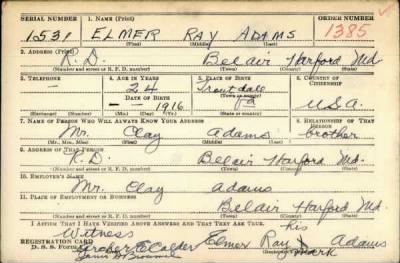 SERIAL NUMBER 1. NAME (Print) ORDER NUMBER
1531 ELMER RAY ADAMS 1385
(First) (Middle) (Last)
2. ADDRESS (Print)
R.D. Belair Harford Md.
(Number and street or R. F. D. number) (Town) (County) (State)
3. TELEPHONE 4. AGE IN YEARS 5. PLACE OF BIRTH 6. COUNTRY OF CITIZENSHIP
— 24 Troutdale
DATE OF BIRTH (Town or county)
— 1916 Va U.S.A.
(Exchange) (Number) (Mo.) (Day) (Yr.) (State or country)
7. NAME OF PERSON WHO WILL ALWAYS KNOW YOUR ADDRESS 8. RELATIONSHIP OF THAT PERSON
Mr. Clay Adams brother
(Mr., Mrs., Miss) (First) (Middle) (Last)
9. ADDRESS OF THAT PERSON
R.D. Belair Harford Md.
(Number and street or R. F. D. number) (Town) (County) (State)
10. EMPLOYER'S NAME
Mr. Clay Adams
11. PLACE OF EMPLOYMENT OR BUSINESS
Belair Harford Md.
(Number and street or R. F. D. number) (Town) (County) (State)
I AFFIRM THAT I HAVE VERIFIED ABOVE ANSWERS AND THAT THEY ARE TRUE.
Witness his
REGISTRATION CARD Elmer Ray X Adams
D. S. S. Form mark